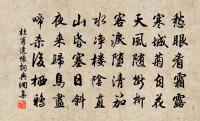 愁眼看霜露
寒城菊自花
天風隨斷柳
客淚墮清笳
水淨樓陰直
山昏塞日斜
夜來歸鳥盡
啼殺後棲鴉
杜甫遣懷詞典網